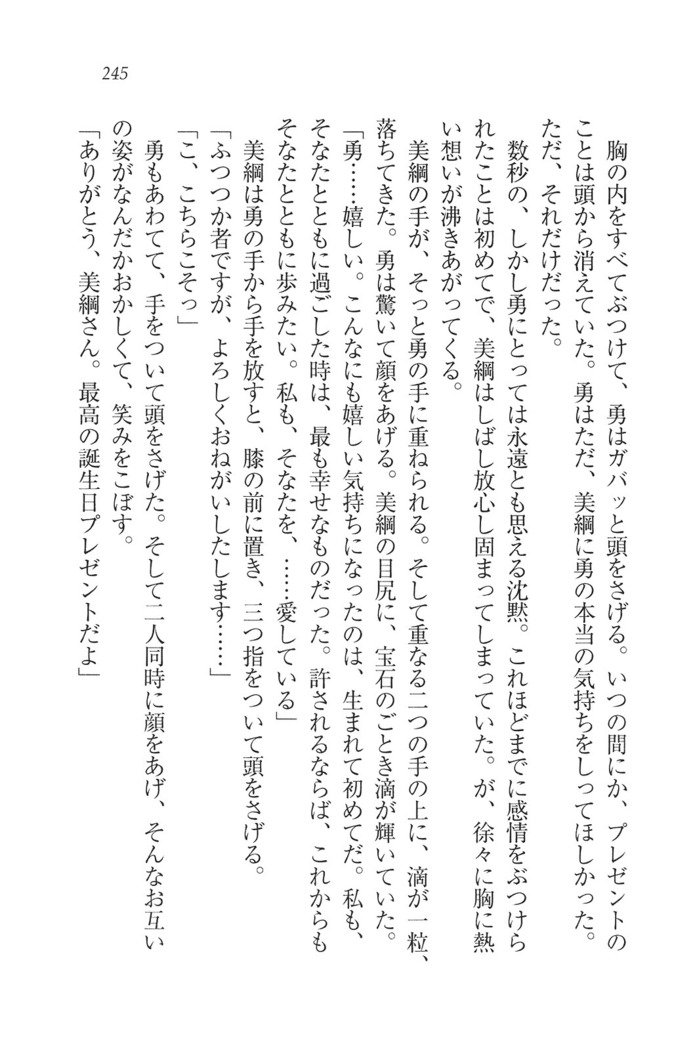 245
胸の内をすべてぶつけて、勇はガバッと頭をさげる。いつの間にか、プレゼントの
ことは頭から消えていた。勇はただ、美綱に勇の本当の気持ちをしってほしかった。
ただ、それだけだった。
数秒の、しかし勇にとっては永遠とも思える沈黙。これほどまでに感情をぶつけら
れたことは初めてで、美綱はしばし放心し固まってしまっていた。が、徐々に胸に熱
い想いが沸きあがってくる。
美綱の手が、そっと勇の手に重ねられる。そして重なる二つの手の上に、滴が一粒、
落ちてきた。勇は驚いて顔をあげる。美綱の目尻に、宝石のごとき滴が輝いていた。
「勇……嬉しい。こんなにも嬉しい気持ちになったのは、生まれて初めてだ。私も、
そなたとともに過ごした時は、最も幸せなものだった。許されるならば、これからも
そなたとともに歩みたい。私も、そなたを、……愛している」
美綱は勇の手から手を放すと、膝の前に置き、三つ指をついて頭をさげる。
「ふつつか者ですが、よろしくおねがいしたします……」
「こ、こちらこそっ」
勇もあわてて、手をついて頭をさげた。そして二人同時に顔をあげ、そんなお互い
の姿がなんだかおかしくて、笑みをこぼす。
「ありがとう、美綱さん。最高の誕生日プレゼントだよ」